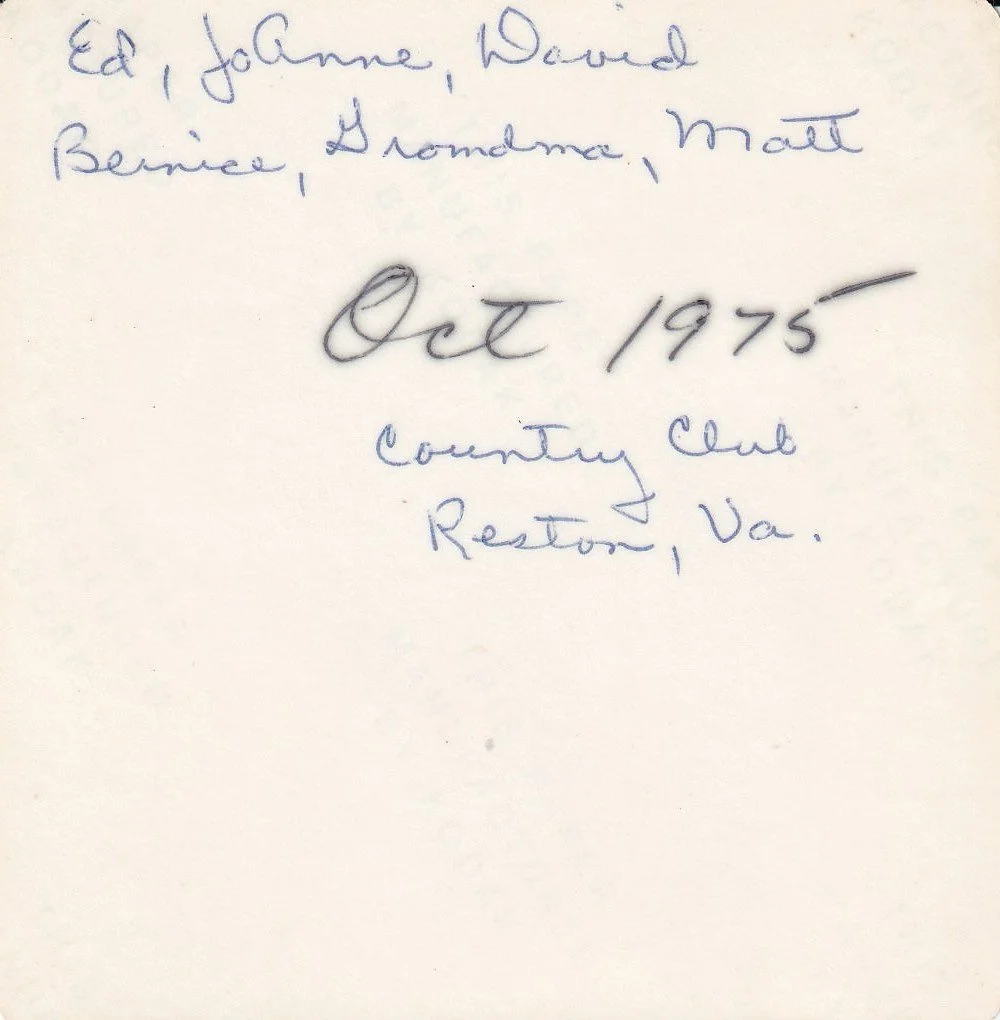 Ed, JoAnne, David
Bernice, Grandma, Matt
Oct 1975
Country Club
Reston, Va.